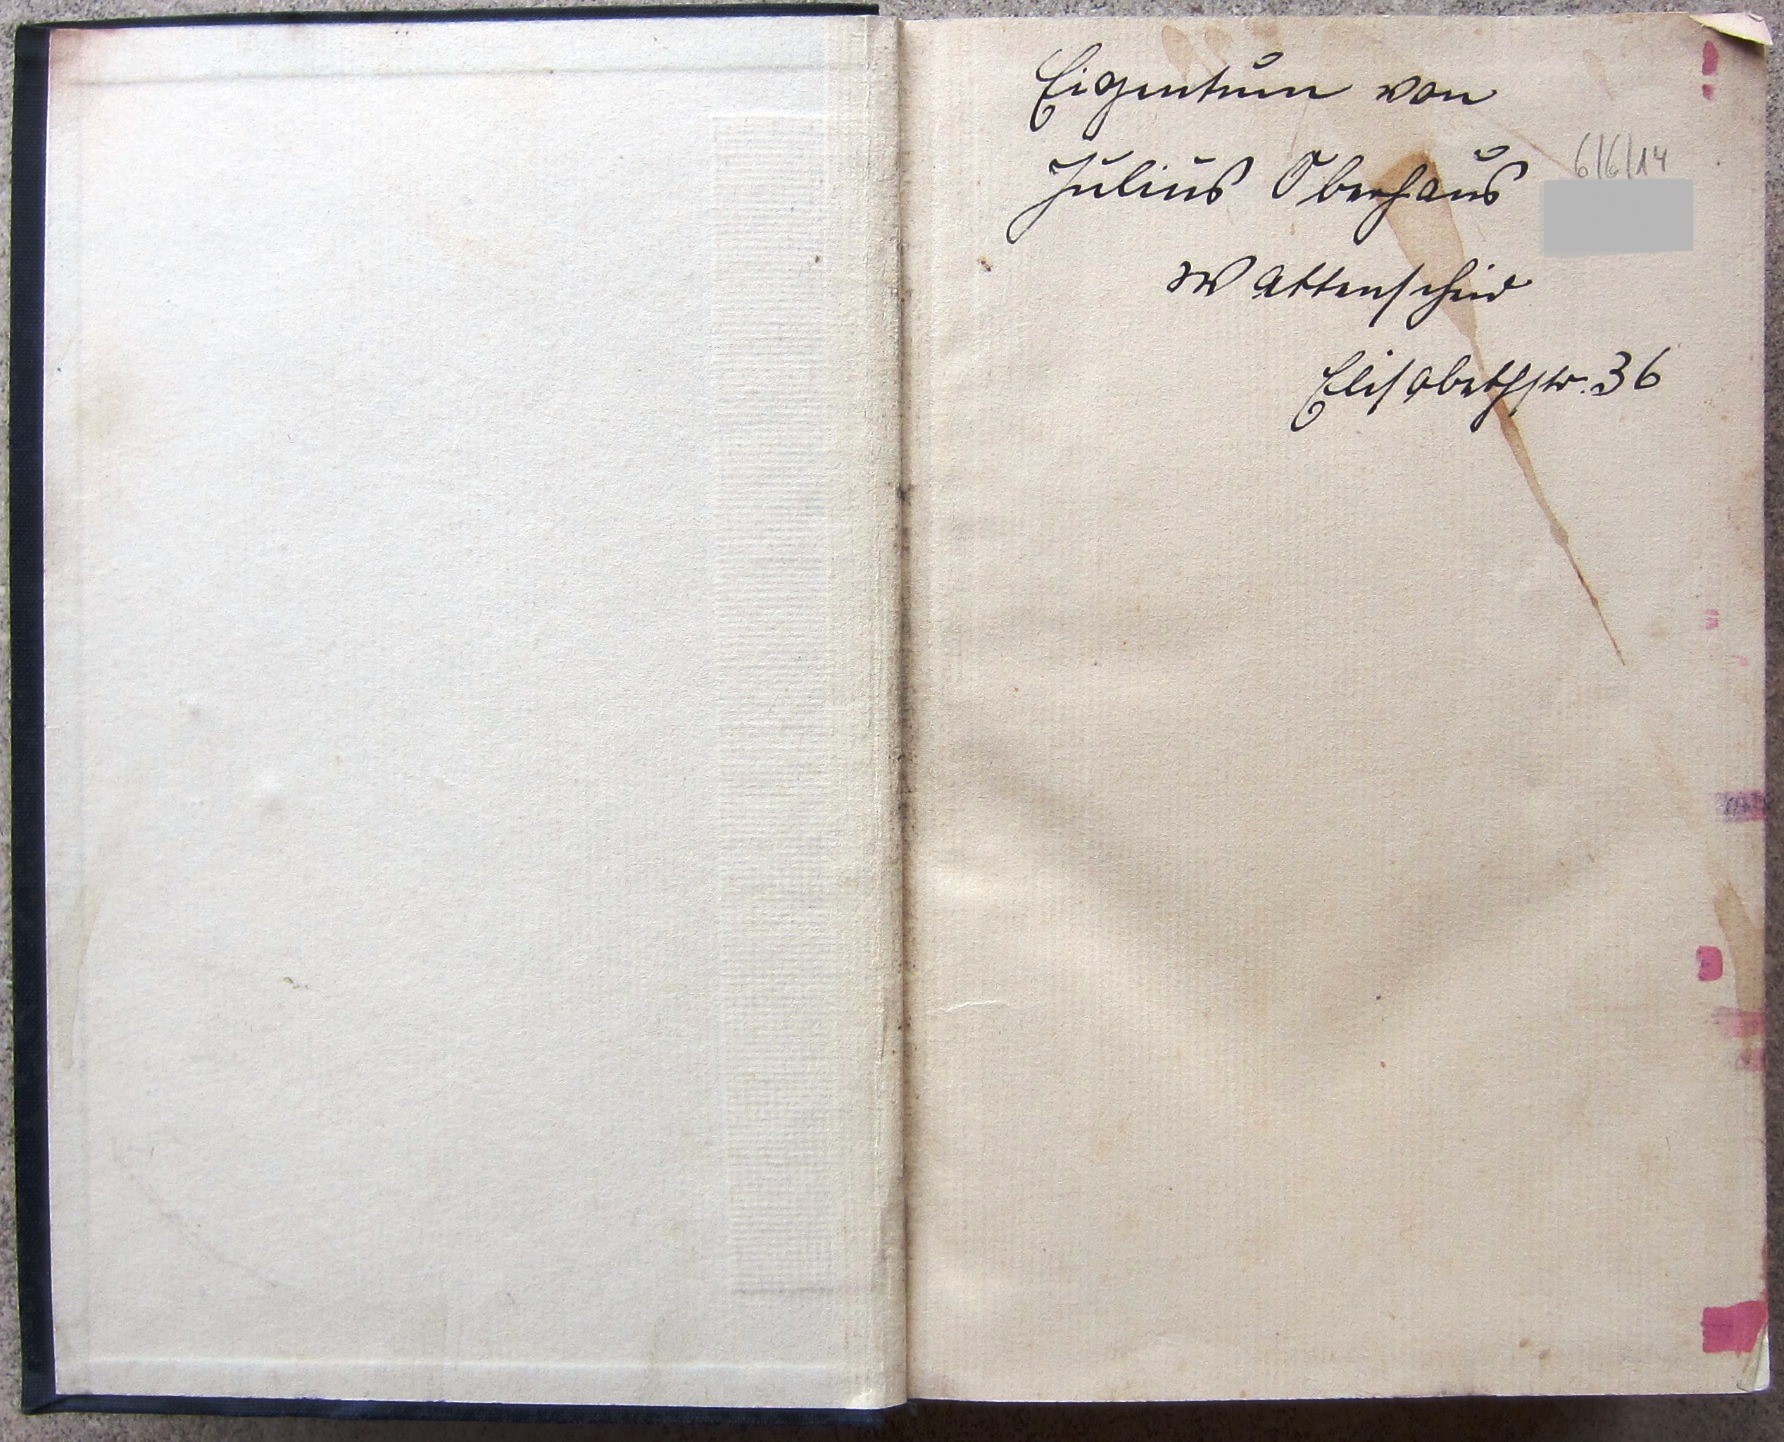 Eigentum von
Julius Oberhaus
6/6/14
Wattenscheid
Elisabethstr. 36